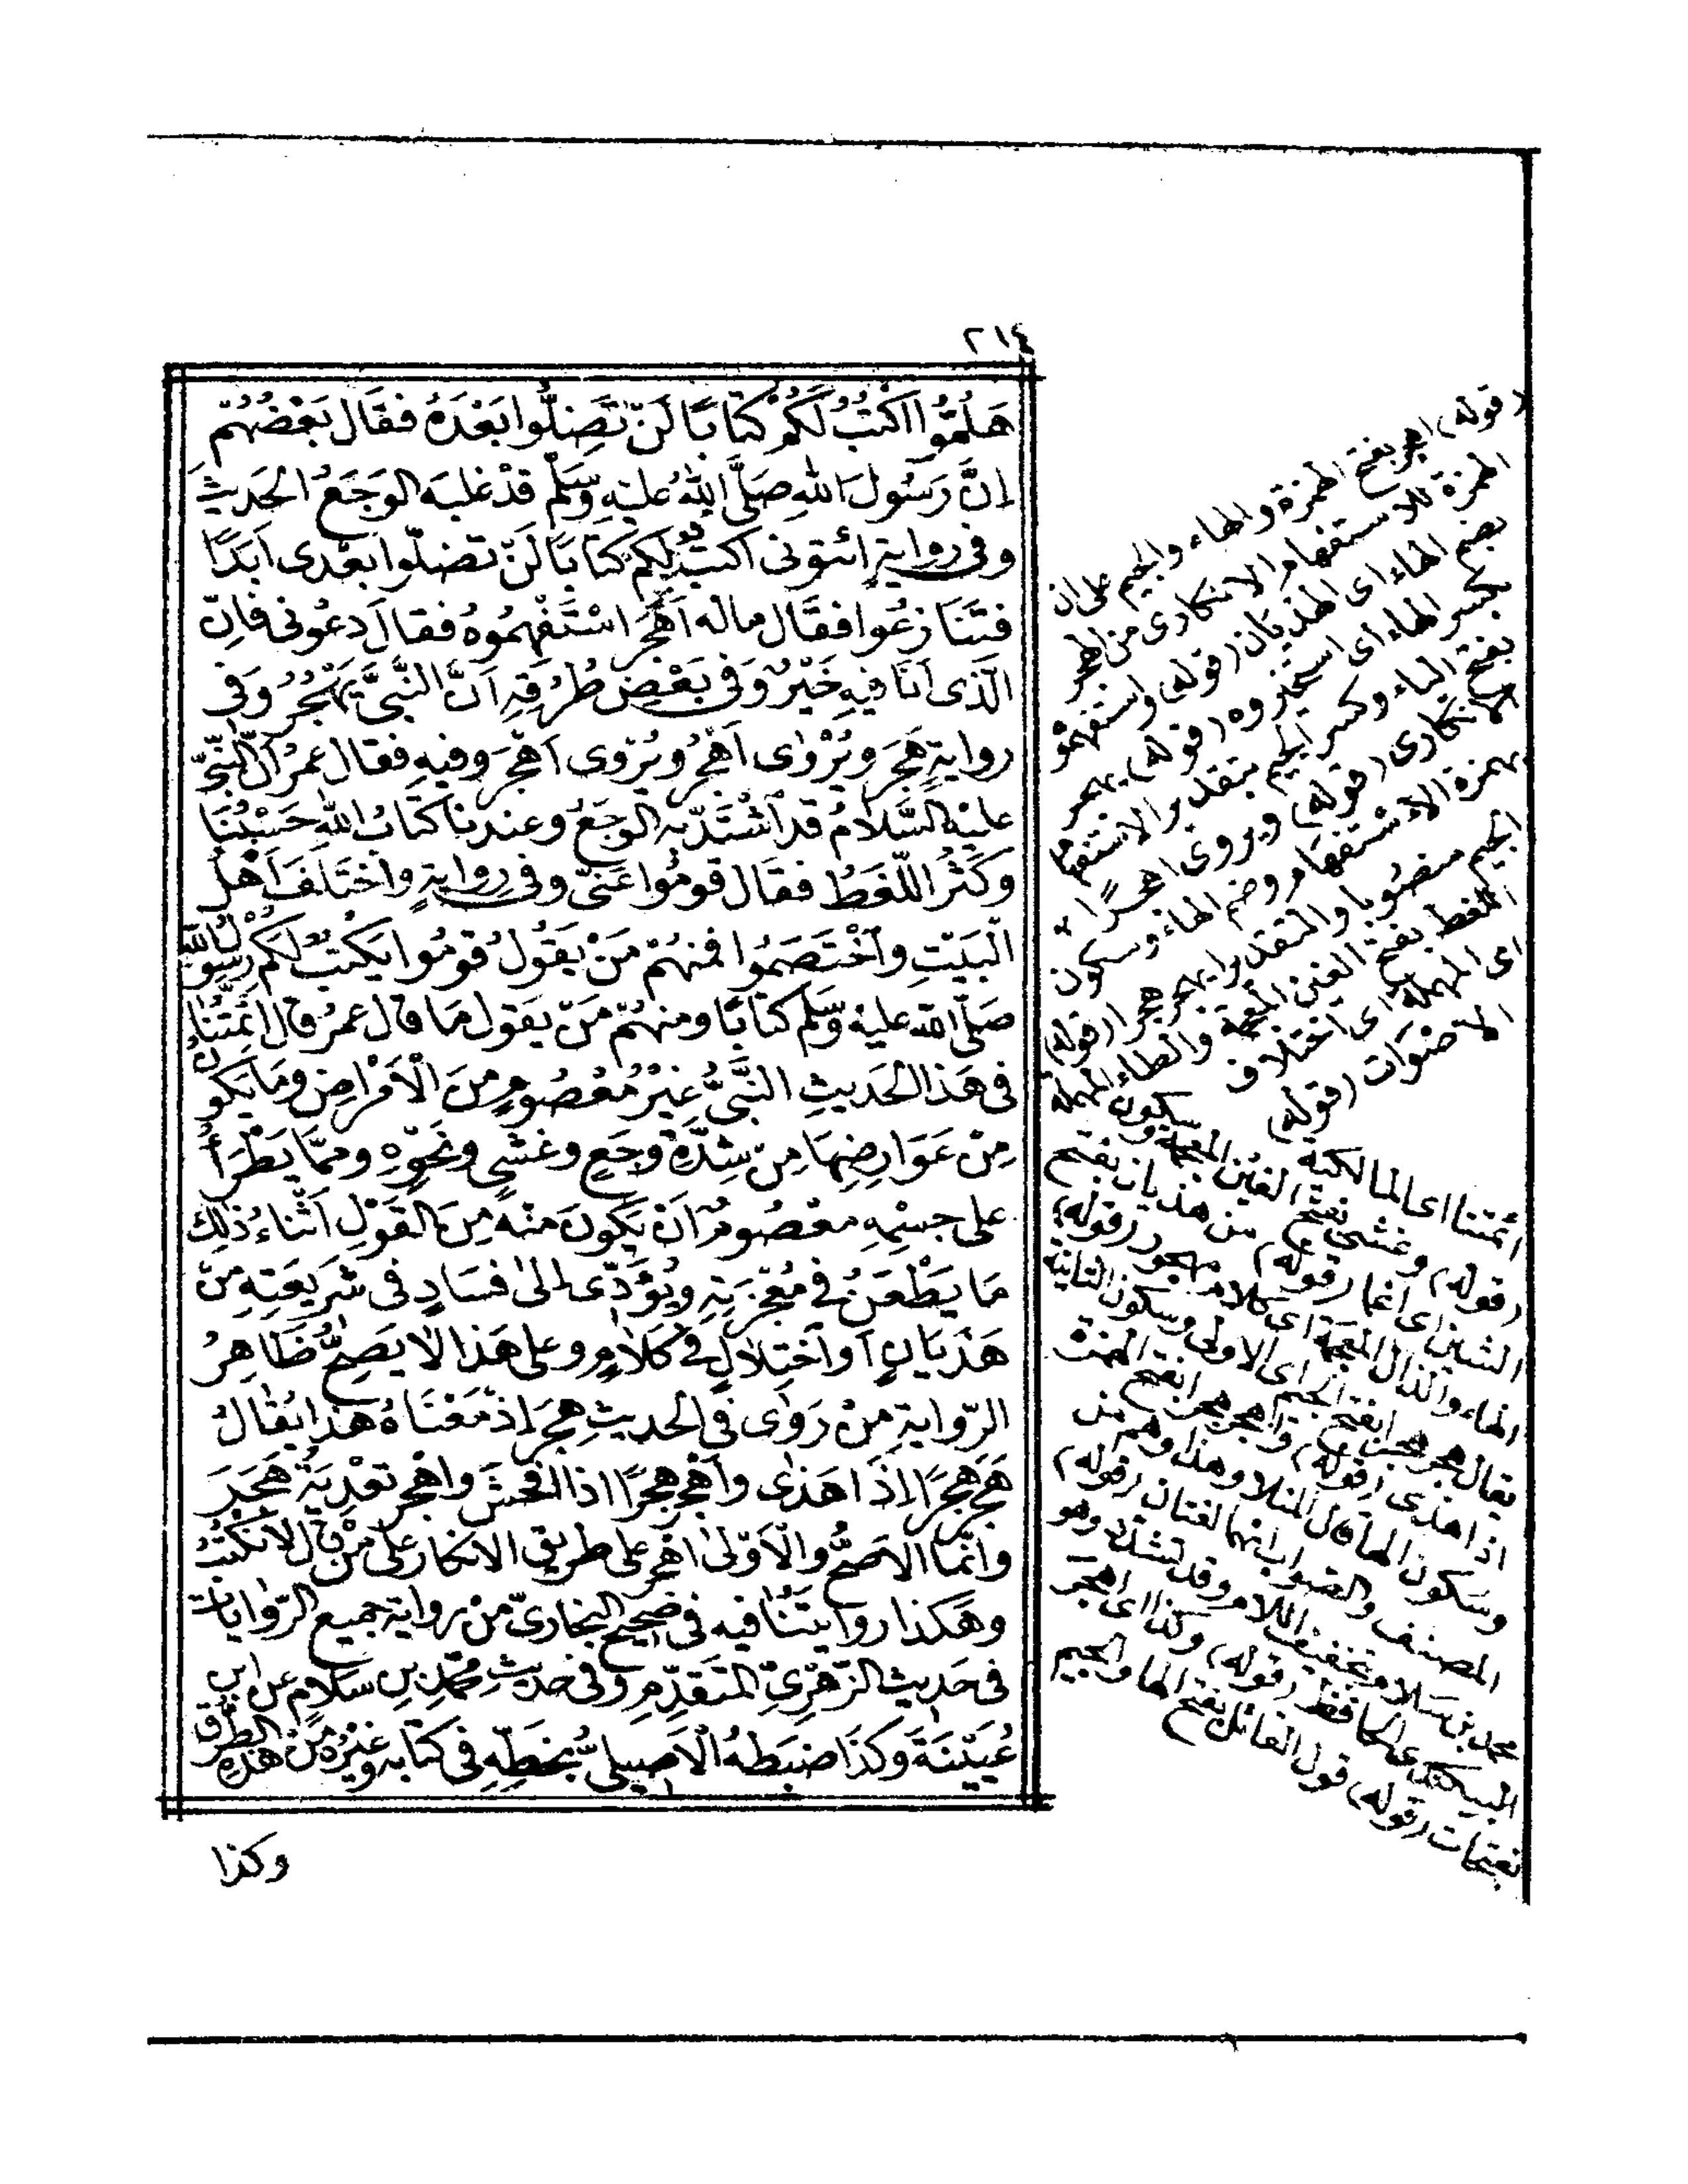 ٢١٤
هَلُمُّوا اَكْتُبُ لَكُمْ كِتَابًا لَنْ تَضِلُّوا بَعْدَهُ فَقَالَ بَعْضُهُمْ
اِنَّ رَسُولَ اللهِ صَلَّى اللهُ عَلَيْهِ وَسَلَّمْ قَدْ غَلَبَهُ الوَجَعُ الْحَدِيثَ
وفى رواية ائتونى اكتبْ لكم كتابًا لَنْ تضلّوا بعدى اَبَدًا
فَتَنَازَعُوا فَقَال ماله اَهَجَرَ اسْتَفْهِمُوهُ فقال دعُونى فاِنّ
الّذى اَنَا فيهِ خَيْرٌ وَفى بَعْضِ طُرُقِهِ اَنَّ النَّبِىَّ يَهْجُرُ وَفى
روايةٍ هَجَرَ ويُرْوٰى اَهُجْرٌ ويُرْوى اَهُجْرًا وفيهِ فقال عمرُ اِنَّ النَّبِىَّ
عليْه السَّلَامُ قد اشْتَدَّ بِهِ الوَجَعُ وعندنا كتابُ اللهِ حَسْبُنَا
وَكَثُرَ اللَّغَطُ فقَال قومُوا عَنّى وفى روايةٍ واخْتَلَفَ اَهْلُ
الْبَيْتِ وَاخْتَصَمُوا فمِنهُمْ مَنْ يَقُولُ قومُوا يَكْتُبْ لَكُمْ رَسُولُ اللهِ
صَلَّى الله عليْه وَسَّلم كتابًا ومنهُمْ مَنْ يَقول مَا قال عمرُ قال ائمَّتُنَا
فى هَذا الحَديثِ النَّبِىُّ غَيْرُ مَعْصُومٍ مِنَ الْاَمْرَاضِ ومَا يَكُونُ
مِنْ عَوَارِضِهَا مِنْ شِدَّةِ وَجَعٍ وغَشْىٍ ونَحْوِهِ ومِمَّا يَطْرَأُ
على جِسْمِهِ معْصُومٌ اَنْ يَكُونَ منْه مِنَ القَوْلِ اَثْنَاءَ ذٰلِكَ
مَا يَطْعَنُ فى مُعْجِزَتِهِ ويُؤَدّى الٰى فسَادٍ فى شَرِيعَتِهِ مِنْ
هَذَيَانٍ اَوْ اخْتِلَالٍ فى كَلَامٍ وعلى هَذا لا يَصِحُّ ظَاهِرُ
الرّوايةِ مِنْ رَوٰى فى الحديثِ هَجَرَ اِذْ مَعْنَاهُ هَذٰا يُقٰالُ
هَجَرَ هُجْرًا اِذَا هَذٰى واَهْجَرَ هُجْرًا اذا اَفْحَشَ واَهْجَرَ تَعْدِيَةُ هَجَرَ
وانّمَا الاَصَحُّ والْاَوْلىٰ اَهَجَرَ على طريقِ الانكار على مَنْ قال لا نَكْتُبُ
وهٰكذا روايتُنَا فيه فى صحيح البخارىّ مِنْ رواية جميع الرّوايات
فى حَديث الزُّهْرِىّ المُتَقَدِّمِ وفى حديثِ مُحَمَّدِ بنِ سَلَامٍ عن ابنِ
عُيَيْنَةَ وَكَذَا ضبَطَهُ الْاَصِيلىُّ بخَطِّهِ فى كتابه وغَيْرُهُ مِنْ هٰذِهِ الطُّرُقِ
وكذا
(قوله) اهجر بفتح الهمزة والهاء والجيم على ان
الهمزة للاستفهام الانكارى من الهجر
بضم الهاء اى الهذيان (قوله) واستفهموه
بكسر الهاء اى استخبروه (قوله) يهجر
بفتح الياء وكسر الجيم بتقدير الاستفهام
الانكارى (قوله) ويروى اهجرًا
بهمزة الاستفهام وضم الهاء وسكون
الجيم منصوبا والتقدير ايهجر هجرا (قوله)
اللغط بفتح الغين المعجمة والطاء المهملة
اى اختلاف
(قوله)
ائمتنا اى المالكية
(قوله) وغشى بفتح الغين المعجمة وسكون
الشين اى اغما (قوله) من هذيان بفتح
الهاء والذال المعجمة اى كلام مهجور (قوله)
يقال هجر هجرا بفتح الجيم اى الاولى وسكون الثانية
اذا هذى (قوله) واهجر هجرا بفتح الهمزة
وسكون الها قال المنلا وهذا وهم من
المصنف والصواب انهما لغتان (قوله)
محمد بن سلام بتخفيف اللام وقد تشدد وهو
البيكندى الحافظ (قوله) وكذا اى اهجر
بفتحات (قوله) قول القائل بفتح الها والجيم